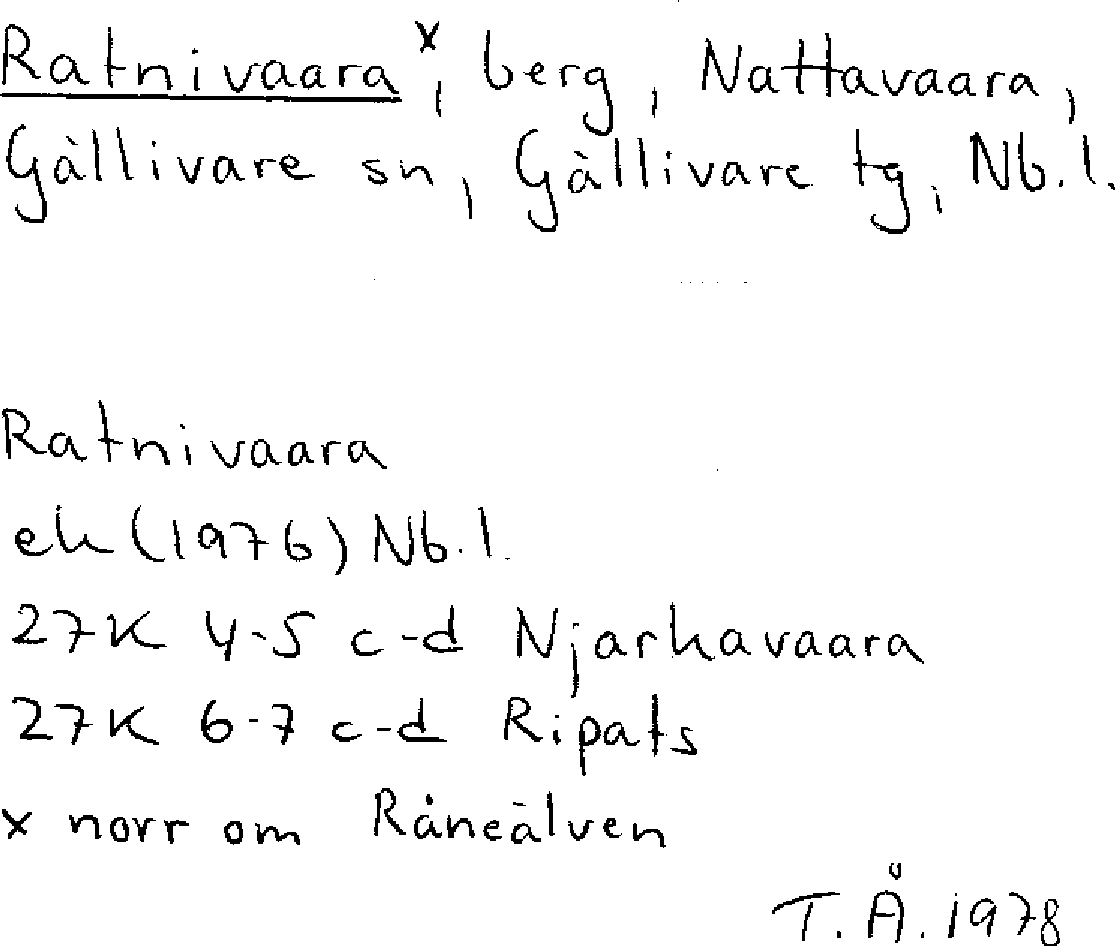 Ratnivaara x, berg, Nattavaara,
Gällivare sn, Gällivare tg, Nb.l.
Ratnivaara
ek (1976) Nb.l.
27K 4-5 c-d Njarkavaara
27K 6-7 c-d Ripats
x norr om Råneälven
T.Å. 1978